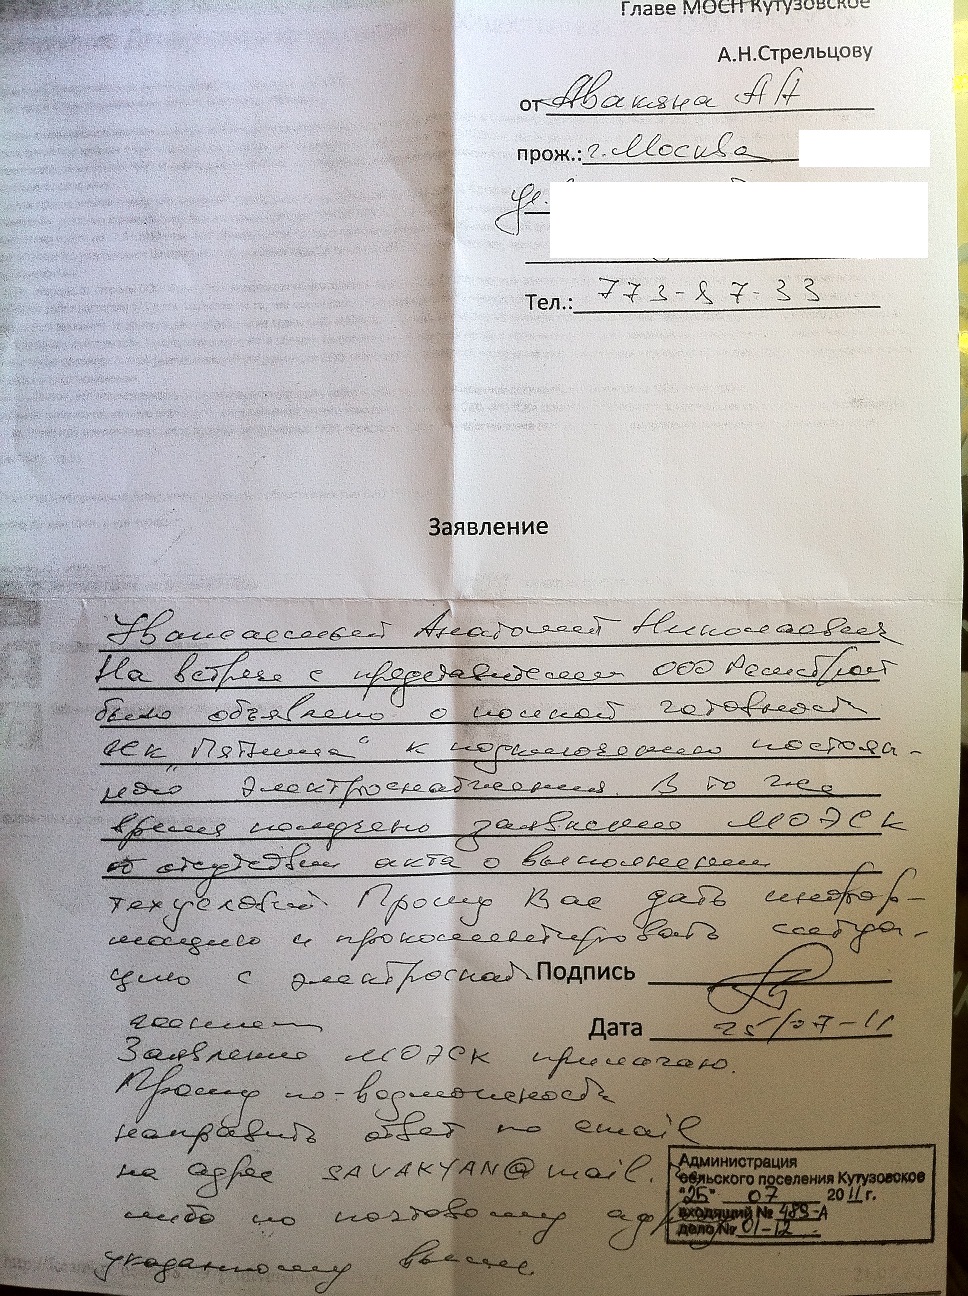 Главе МОСП Кутузовское
А.Н.Стрельцову
от Авакяна А А
прож.: г. Москва
ул.
Тел.: 773-87-33
Заявление
Уважаемый Анатолий Николаевич
На встрече с представителем ООО
было объявлено о полной готовности
"Пятница" к подключению постоян-
ного электроснабжения. В то же
время получено заявление МОЭСК
о отсутствии акта о выполнении
техусловий. Прошу Вас дать инфор-
мацию и прокоментировать ситуа-
цию с электроснаб Подпись
жением
Дата 25/07-11
Заявление МОЭСК прилагаю.
Прошу по-возможности
направить ответ по email
на адрес SAVAKYAN@mail.
либо по почтовому адресу
указанному выше.
Администрация
сельского поселения Кутузовское
"26" 07 2011 г.
входящий № 489-А
дело № 01-12